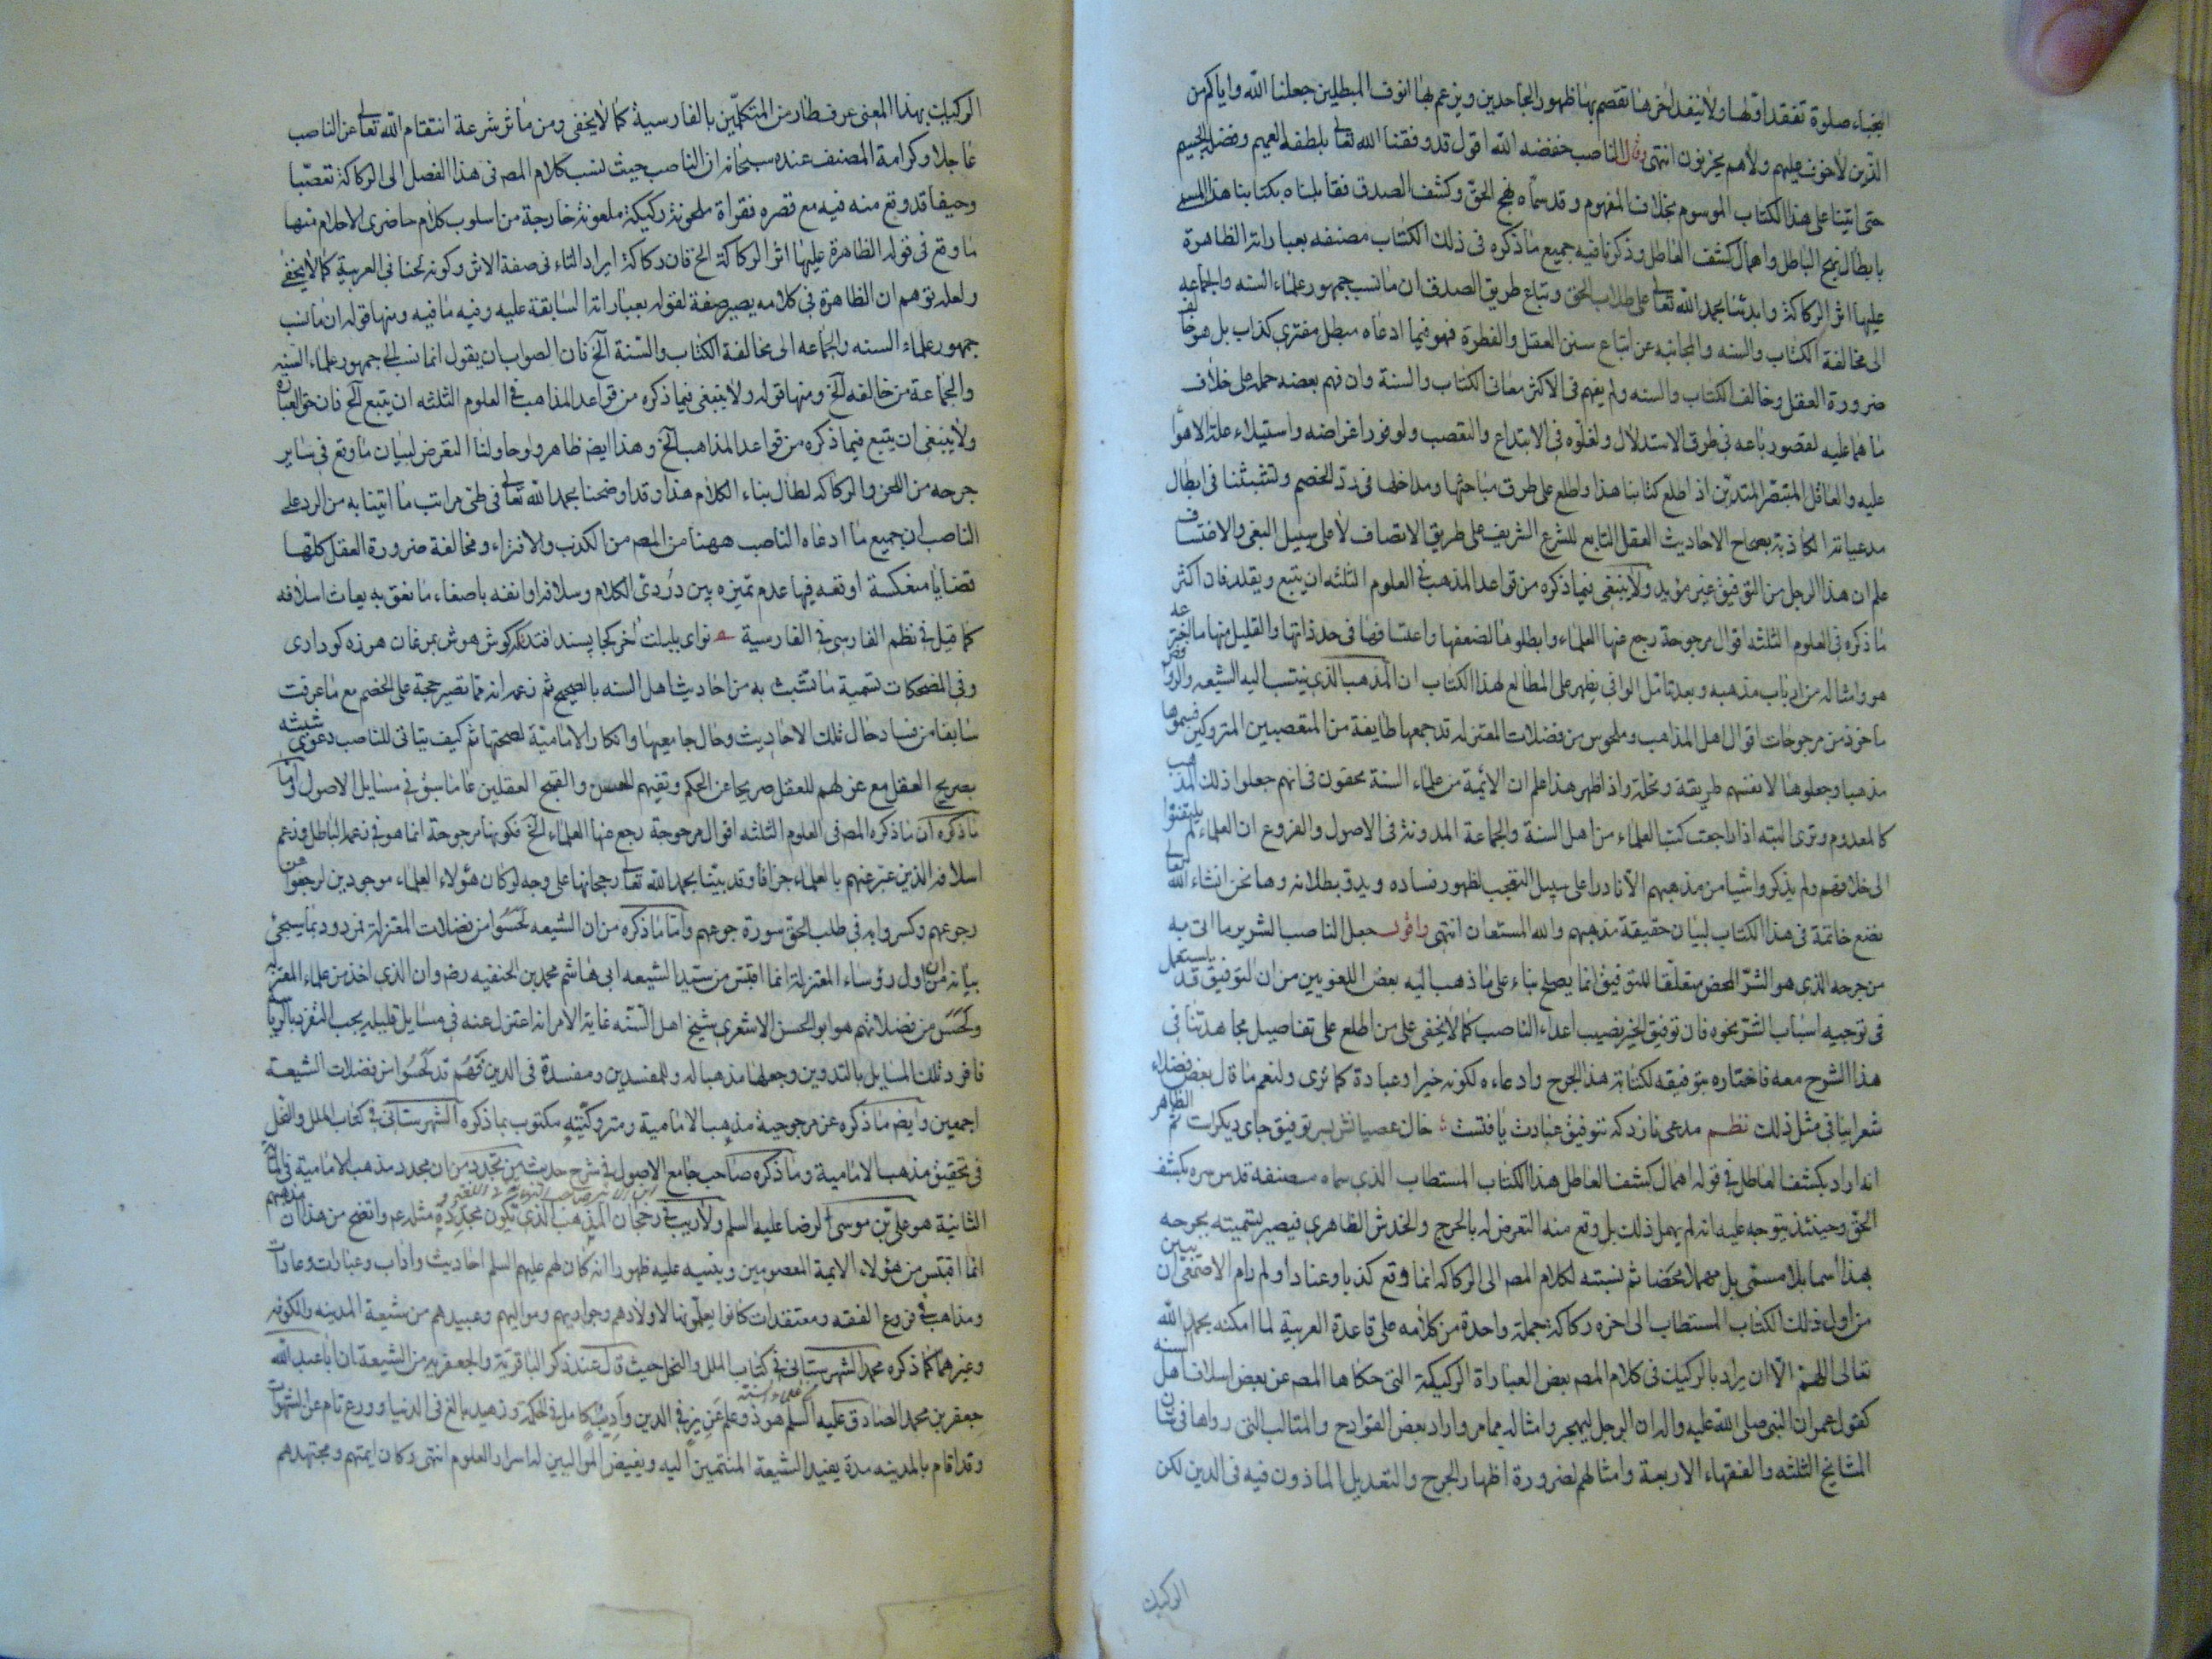 النجباء صلوة تفقد اولها ولا ينفد اخرها تقصم بها ظهور الجاحدين ويزعم بها انوف المبطلين جعلنا الله واياكم من
الذين لا خوف عليهم ولا هم يحزنون انتهى وقال الناصب خفضه الله اقول قد وفقنا الله تعالى بلطفه العميم وفضله الجسيم
حتى اتينا على هذا الكتاب الموسوم بخلاف المفهوم وقد سماه نهج الحق وكشف الصدق فقابلناه بكتابنا هذا المسمى
بابطال نهج الباطل واهمال كشف العاطل وذكرنا فيه جميع ما ذكره فى ذلك الكتاب مصنفه بعباراته الظاهرة
عليها اثر الركاكة وابدئنا بحمد الله تعالى على طلاب الحق وتباع طريق الصدق ان ما نسب جمهور علماء السنه والجماعه
الى مخالفة الكتاب والسنه والمجانبه عن اتباع سنن العقل والفطرة فهو فيما ادعاه مبطل مفترى كذاب بل هو خالف
ضرورة العقل وخالف الكتاب والسنه ولم يفهم فى الاكثر معانى الكتاب والسنة وان فهم بعضه حمله على خلاف
ما هما عليه لقصور باعه فى طرق الاستدلال ولغلوه فى الابتداع والتعصب ولوفور اغراضه واستيلاء علة الاهوأ
عليه والعاقل المتبصر المتدين اذا طلع كتابنا هذا واطلع على طرق مباحثها ومداخلها فى رد الخصم وتشبثنا فى ابطال
مدعياته الكاذبة بصحاح الاحاديث العقل المتابع للشرع الشريف على طريق الانصاف لا على سبيل البغى والاعتساف
علم ان هذا الرجل من التوفيق غير مؤيد ولا ينبغى فيما ذكره من قواعد المذهب فى العلوم الثلثه ان يتبع ويقلد فان اكثر
ما ذكره فى العلوم الثلثه اقوال مرجوحة رجع عنها العلماء وابطلوها لضعفها واعتسافها فى حد ذاتها والقليل منها ما اخترعه
هو وامثاله من ارباب مذهبه وبعد تامل الوافى يظهر على المطالع لهذا الكتاب ان المذهب الذى ينتسب اليه الشيعه والروافض
ماخوذ من مرجوحات اقوال اهل المذاهب وملحوس من فضلات المعتزله قد جمعها طايفة من المتعصبين المتروكين فسموها
مذهبا وجعلوها لانفسهم طريقة ونحلة واذا ظهر هذا علم ان الايمة من علماء السنة محقون فى انهم جعلوا ذلك المذهب
كالمعدوم وترى البته اذا راجعت كتب العلماء من اهل السنة والجماعة المدونة فى الاصول والفروع ان العلماء لم يلتفتوا
الى خلافهم ولم يذكروا شيا من مذهبهم الا نادرا على سبيل التعجب لظهور فساده وبدو بطلانه وها نحن انشاء الله تعالى
نضع خاتمة فى هذا الكتاب لبيان حقيقة مذهبهم والله المستعان انتهى واقول جعل الناصب الشرير ما اتى به
من جرحه الذى هو الشر المحض متعلقا للتوفيق انما يصلح بناء على ما ذهب اليه بعض اللغويين من ان التوفيق قد يستعمل
فى توجيه اسباب الشر نحوه فان توفيق الخير نصيب اعداء الناصب كما لا يخفى على من اطلع على تفاصيل مجاهدتنا فى
هذا الشرح معه فاختاره بتوفيقه لكتابة هذا الجرح وادعاءه لكونه خيرا وعبادة كما ترى ولنعم ما قال بعض فضلاء
شعرايا فى مثل ذلك نظم مدعى نازد كه توفيق عبادت يافتست خال عصيانش بسر توفيق جاى ديكرات ثم الظاهر
انه اراد بكشف العاطل فى قوله اهمال كشف العاطل هذا الكتاب المستطاب الذى سماه مصنفه قدس سره بكشف
الحق وحينئذ يتوجه عليه انه لم يهمل ذلك بل وقع منه التعرض له بالجرح والخدش الظاهرى فيصير تسميته بجرحه
بهذا اسما بلا مسمى بل مهملا محضا ثم نسبته لكلام المصـ الى الركاكه انما وقع كذبا وعنادا ولم رام الاحتفى ان يبين
من اول ذلك الكتاب المستطاب الى اخره ركاكة جملة واحدة من كلامه على قاعدة العربية لما امكنه بحمد الله
تعالى اللهم الا ان يراد بالركيك فى كلام المصـ بعض العباراة الركيكة التى حكاها المصـ عن بعض اسلاف اهل السنه
كقول عمر ان النبى صلى الله عليه واله ان الرجل ليهجر وامثاله مما مر واراد بعض القوادح والمثالب التى رواها فى شان
المشايخ الثلثه والفقهاء الاربعة وامثالهم لضرورة اظهار الجرح والتعديل الماذون فيه فى الدين لكن
الركيك
الركيك بهذا المعنى عرف طار من المتكلمين بالفارسية كما لا يخفى ومن ماثر شرعة انتقام الله تعالى عن الناصب
عاجلا وكرامة المصنف عنده سبحانه ان الناصب حيث نسب كلام المصـ فى هذا الفصل الى الركاكة تعصبا
وحيفا قد وقع منه فيه مع قصره فقراة ملحونة ركيكة ملعونة خارجة من اسلوب كلام حاضرى الاحلام منها
ما وقع فى قوله الظاهرة عليها اثر الركاكة الخ فان ركاكة ايراد التاء فى صفة الاثر وكونه لحنا فى العربية كما لا يخفى
ولعله توهم ان الظاهرة فى كلامه يصير صفة لقوله بعباراته السابقة عليه وفيه ما فيه ومنها قوله ان ما نسب
جمهور علماء السنه والجماعه الى مخالفة الكتاب والسنة الخ فان الصواب ان يقول انما نسب الى جمهور علماء السنه
والجماعة من خالفه الخ ومنها قوله ولا ينبغى فيما ذكره من قواعد المذاهب فى العلوم الثلثه ان يتبع الخ فان حق العبارة
ولا ينبغى ان يتبع فيما ذكره من قواعد المذاهب الخ وهذا ايضـ ظاهر ولو حاولنا التعرض لبيان ما وقع فى ساير
جرحه من اللحن والركاكه لطال بناء الكلام هذا وقد اوضحنا بحمد الله تعالى فى طى مراتب ما اتينا به من الرد على
الناصب ان جميع ما ادعاه الناصب ههنا من المصـ من الكذب والافتراء ومخالفة ضرورة العقل كلها
قضايا منعكسة اوقعه فيها عدم تميزه بين دردى الكلام وسلافه او انفه باصغاء ما نعق به بغاث اسلافه
كما قيل فى نظم الفارسى فى الفارسية نواى بلبلت اخر كجا پسند افتد كه گوش هوش بمرغان هرزه كو دارى
وفى المضحكات تسمية ما تشبث به من احاديث اهل السنه بالصحيح ثم زعمه انه مما تصير حجة على الخصم مع ما عرفت
سابقا من فساد حال تلك الاحاديث وحال جامعيها وانكار الامامية لصحتها ثم كيف يتاتى للناصب دعوى تشبثه
بصريح العقل مع عزلهم للعقل صريحا عن الحكم ونفيهم الحسن والقبح العقلين عا ما سبق فى مسايل الاصول واما
ما ذكره ان ما ذكره المصـ فى العلوم الثلثه اقوال مرجوحة رجع عنها العلماء الخ فكونها مرجوحة انما هو فى زعمه الباطل وزعم
اسلافه الذين عبر عنهم بالعلماء جزافا وقد بينا بحمد الله تعالى رجحانها على وجه لو كان هؤلاء العلماء موجودين لرجعوا عن
رجوعهم وكسروا به فى طلب الحق سورة جوعهم واما ما ذكره من ان الشيعه لحسوا من فضلات المعتزلة فمردود بما سيجئ
بيانه من ان اول رؤساء المعتزلة انما اقتبس من سيد الشيعه ابى هاشم محمد بن الحنفيه رضـ وان الذى اخذ من علماء المعتزله
ولحس من فضلاتهم هو ابو الحسن الاشعرى شيخ اهل السنه غاية الامر انه اعتزل عنه فى مسايل قليله بحب التفرد بالرياسه
فافرد تلك المسايل بالتدوين وجعلها مذهبا له وللمفسدين ومفسدة فى الدين فهم قد لحسوا من فضلات الشيعـة
اجمعين وايضـ ما ذكره عن مرجوحية مذهب الامامية ومتروكيته مكتوب بما ذكره الشهرستانى فى كتاب الملل والنحل
فى تحقيق مذهب الامامية وما ذكره صاحب جامع الاصول فى شرح حديث من يتجدد من ان مجدد مذهب الامامية فى المائة
ابن الاثير صاحب النهاية فى اللغة
الثانية هو على بن موسى الرضا عليه السلم ولا ريب فى رجحان المذهب الذى يكون مجدده مثله عم واتضح من هذا ان مذهبهم
انما اقتبس من هؤلاء الايمة المعصومين وينبه عليه ظهورا انه كان لهم عليهم السلم احاديث واداب وعبارات وعادات
ومذاهب فى فروع الفقه ومعتقدات كانوا يعلمونها لاولادهم وجواريهم ومواليهم وعبيدهم من شيعة المدينه والكوفه
وغيرهما كما ذكره محمد الشهرستانى فى كتاب الملل والنحل حيث قال عند ذكر الباقرية والجعفريه من الشيعة ان ابا عبد الله
جعفر بن محمد الصادق عليه السلم هو ذو علم غزير فى الدين واديب كامل فى الحكمه وزهيد بالغ فى الدنيا وورع تام عن الشهوات
وقد اقام بالمدينه مدة يفيد الشيعة المنتمين اليه ويفيض الموالين له اسرار العلوم انتهى وكان ايمتهم ومجتهدهم